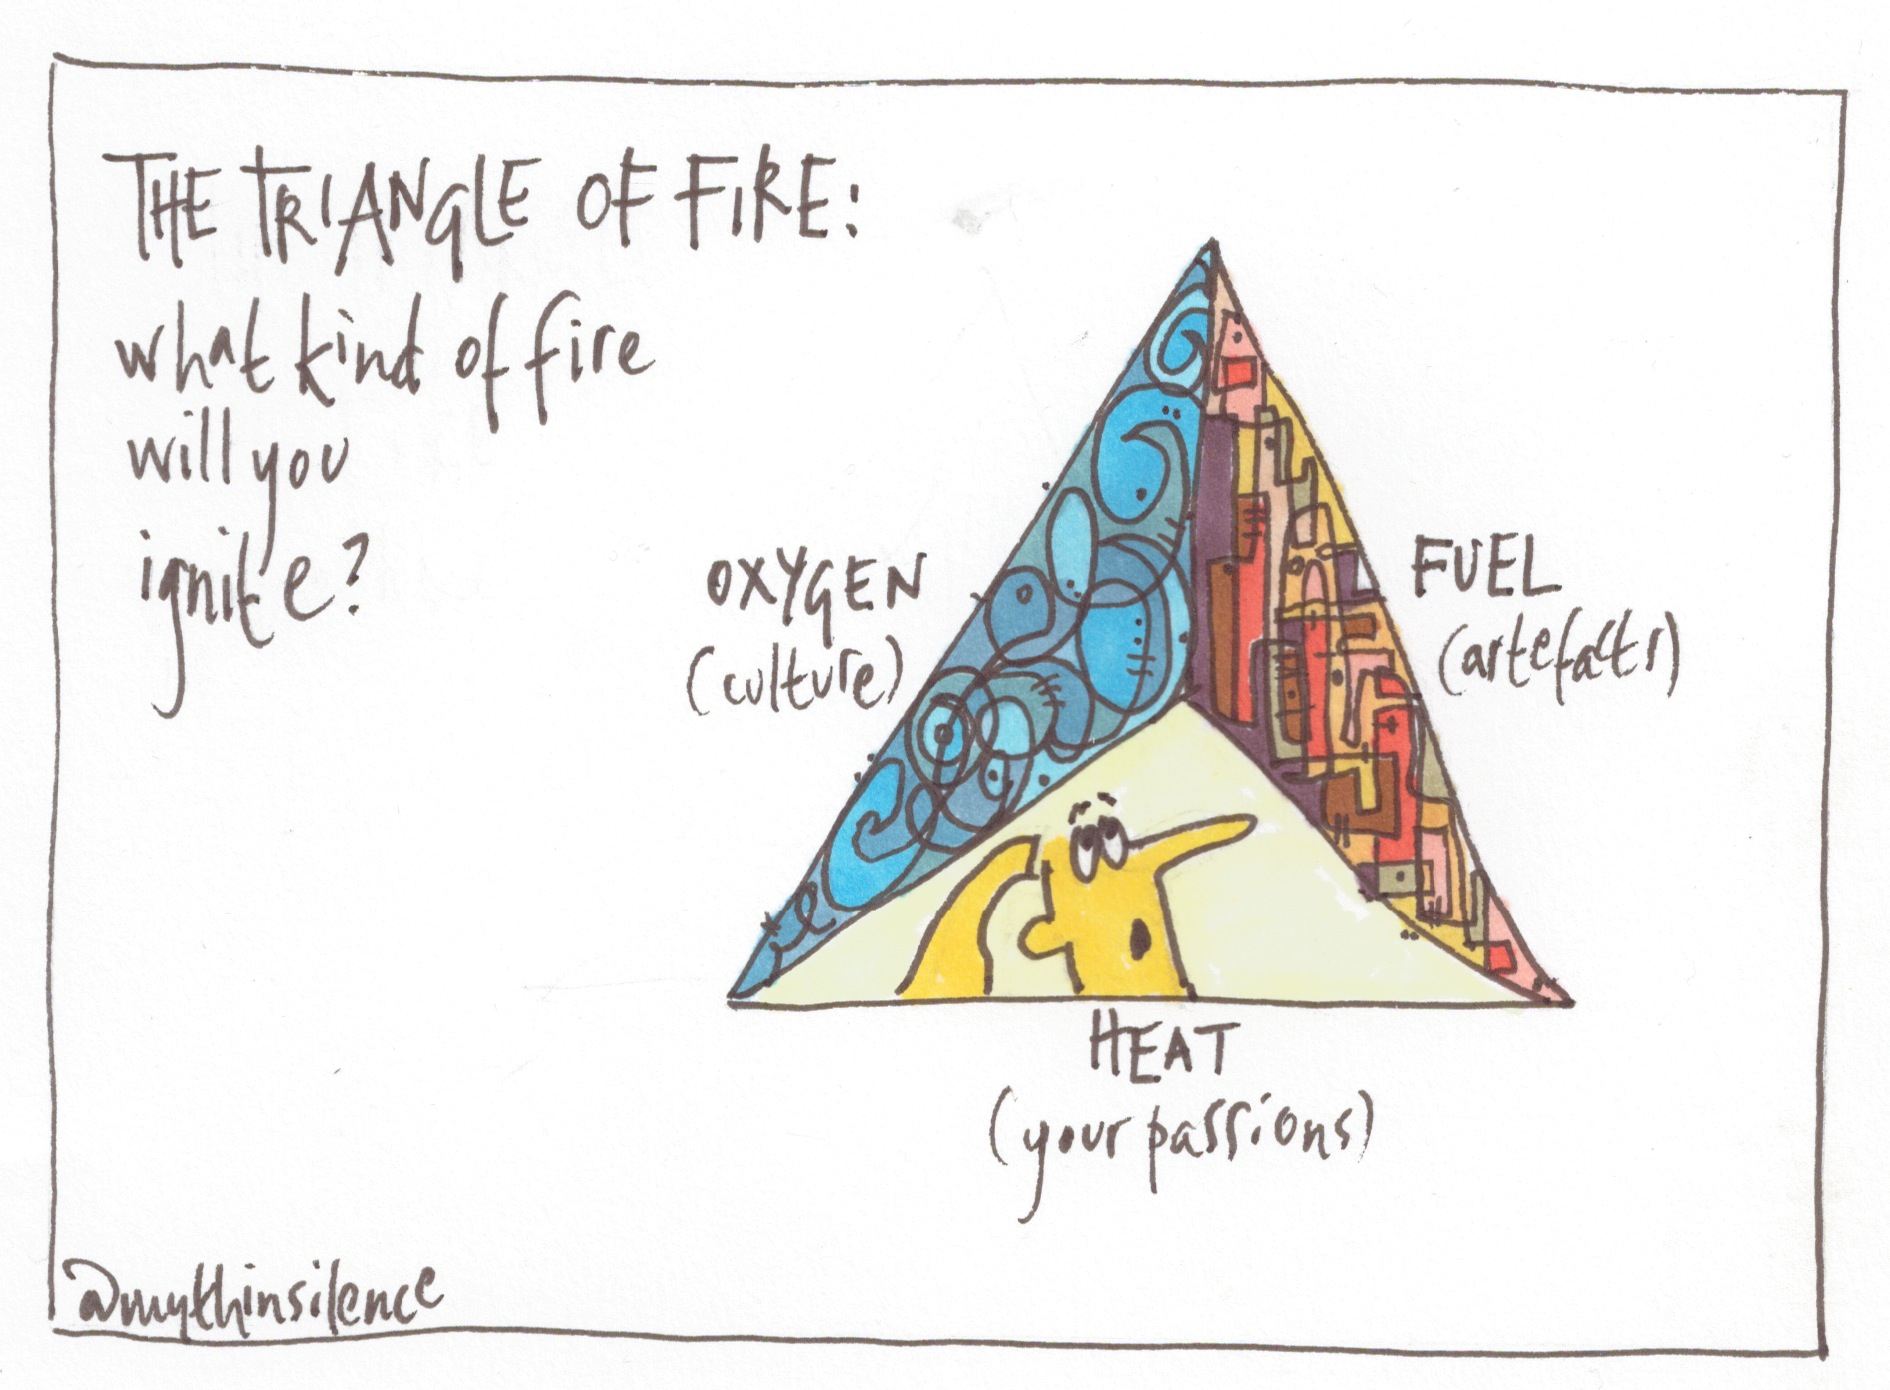 THE TRIANGLE OF FIRE:
what kind of fire
will you
ignite?
OXYGEN
(culture)
FUEL
(artefacts)
HEAT
(your passions)
@mythinsilence